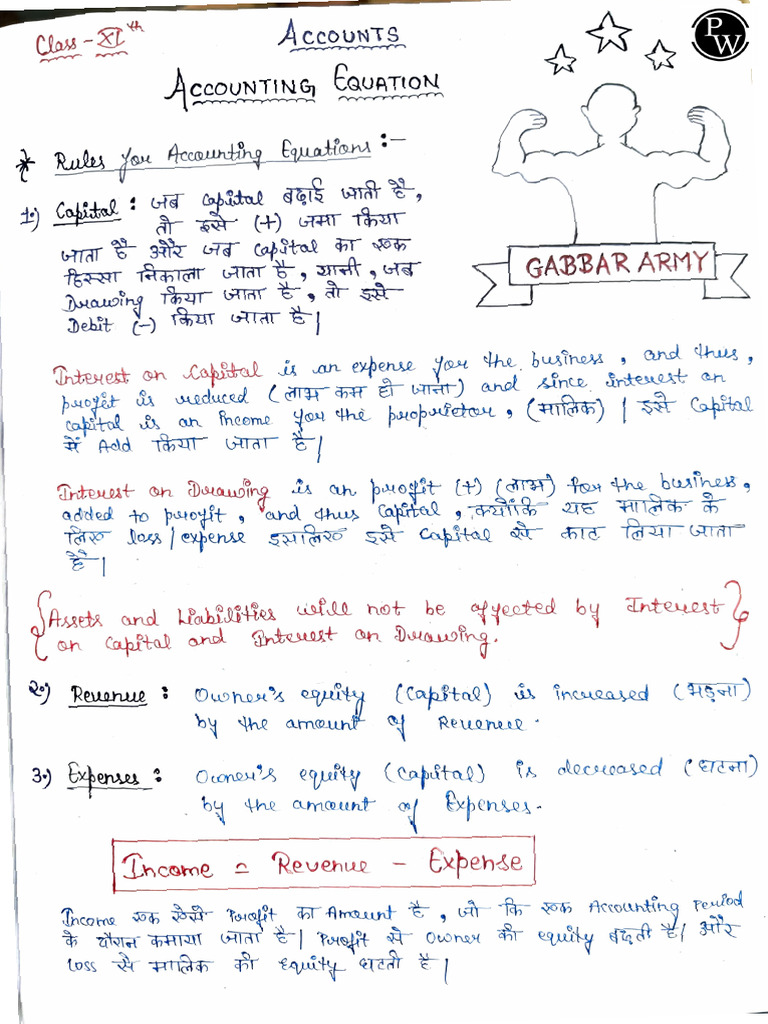 Class - XI th
ACCOUNTS
PW
ACCOUNTING EQUATION
* Rules for Accounting Equations :-
1.) Capital : जब Capital बढ़ाई जाती है,
तो इसे (+) जमा किया
जाता है और जब Capital का एक
हिस्सा निकाला जाता है, यानी, जब
Drawing किया जाता है, तो इसे
Debit (-) किया जाता है|
GABBAR ARMY
Interest on Capital is an expense for the business, and thus,
profit is reduced (लाभ कम हो जाना) and since interest on
capital is an Income for the proprietor, (मालिक) | इसे Capital
में Add किया जाता है|
Interest on Drawing is an profit (+) (लाभ) for the business,
added to profit, and thus Capital, क्योंकि यह मालिक के
लिए loss/expense इसलिए इसे Capital से काट लिया जाता
है|
{Assets and Liabilities will not be affected by Interest
on Capital and Interest on Drawing.}
2.) Revenue : Owner's equity (Capital) is increased (भड़ना)
by the amount of Revenue.
3.) Expenses : Owner's equity (Capital) is decreased (घटना)
by the amount of Expenses.
Income = Revenue - Expense
Income एक ऐसे Profit का Amount है, जो कि एक Accounting Period
के दौरान कमाया जाता है| Profit से Owner की equity बढ़ती है| और
Loss से मालिक की Equity घटती है|